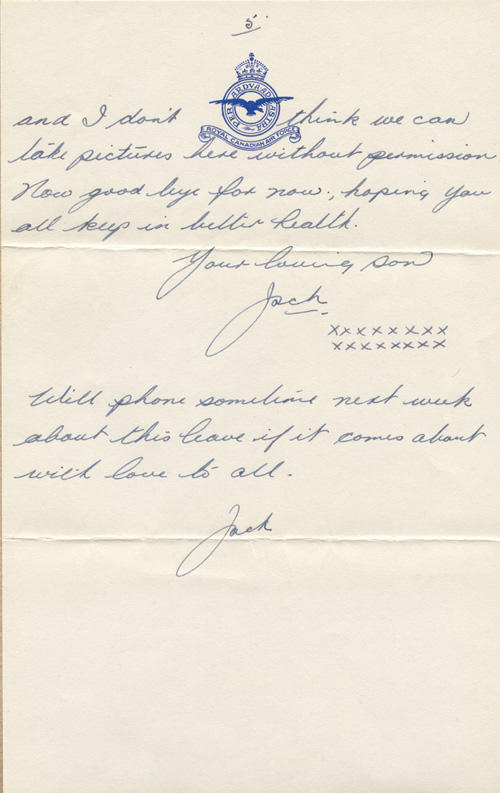 5
PER ARDUA AD ASTRA
ROYAL CANADIAN AIR FORCE
and I don't think we can
take pictures here without permission
Now good bye for now, hoping you
all keep in better health.
Your loving son
Jack
xxxxxxxx
xxxxxxxx
Will phone sometime next week
about this leave if it comes about
with love to all.
Jack